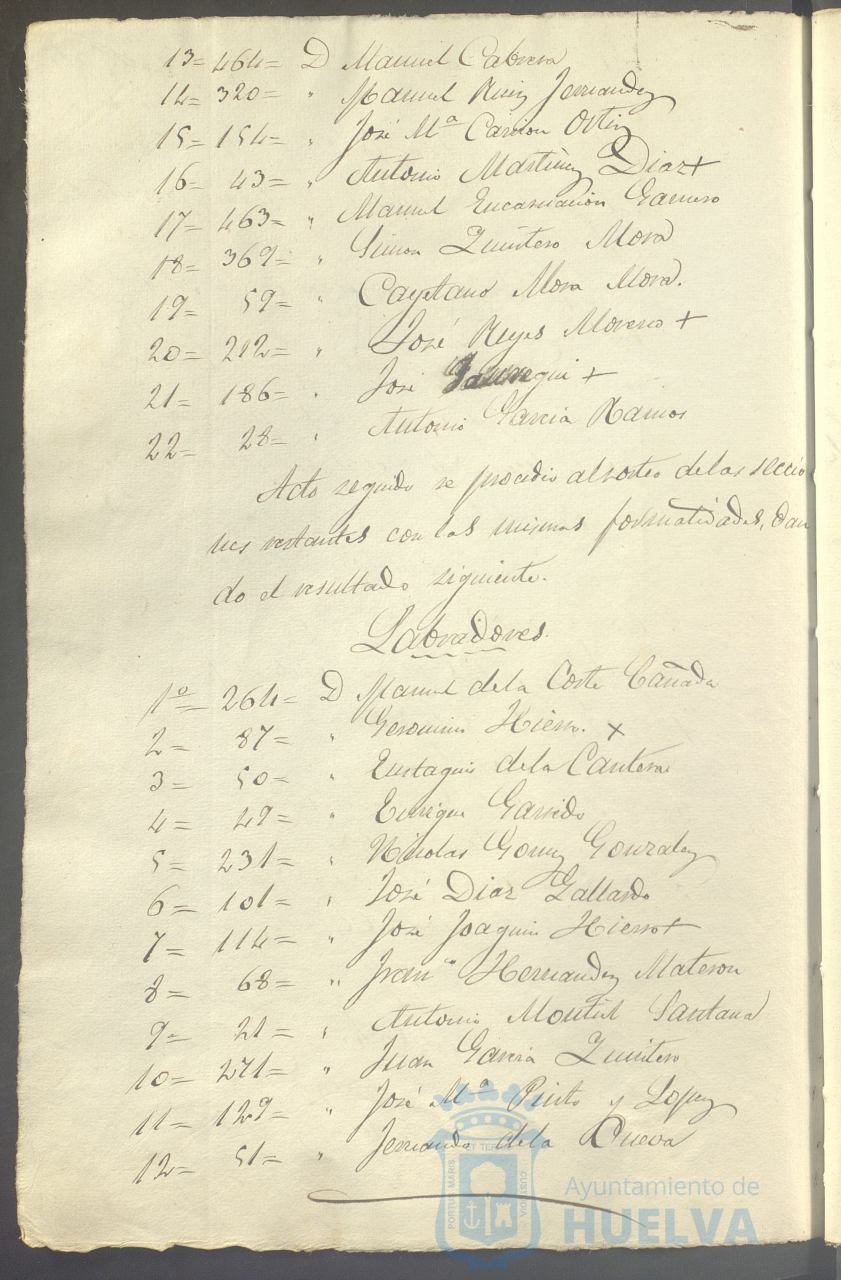 13= 464= D Manuel Cabrera
14= 320= " Manuel Ruiz Fernandez
15= 154= " José Mª Carrion Ortiz
16= 43= " Antonio Martinez Diaz +
17= 463= " Manuel Encarnación Garnero
18= 369= " Simon Quintero Mora
19= 59= " Cayetano Mora Mora.
20= 212= " José Reyes Moreno +
21= 186= " José Jauregui +
22= 28= " Antonio Garcia Ramos
Acto seguido se procedio al sorteo de las seccio
nes restantes con las mismas formalidades, dan
do el resultado siguiente.
Labradores.
1º= 264= D Manuel de la Corte Cañada
2= 87= " Geronimo Hierro. +
3= 50= " Eustaquio de la Cantera
4= 49= " Enrique Garrido
5= 231= " Nicolas Gomez Gonzalez
6= 101= " José Diaz Gallardo
7= 114= " José Joaquin Hierro +
8= 68= " Franº Hernandez Materon
9= 21= " Antonio Montiel Santana
10= 271= " Juan Garcia Quintero
11= 129= " José Mª Pinto y Lopez
12= 51= " Fernando de la Cueva
PORTUS MARIS ET TERRAE CUSTODIA
Ayuntamiento de
HUELVA